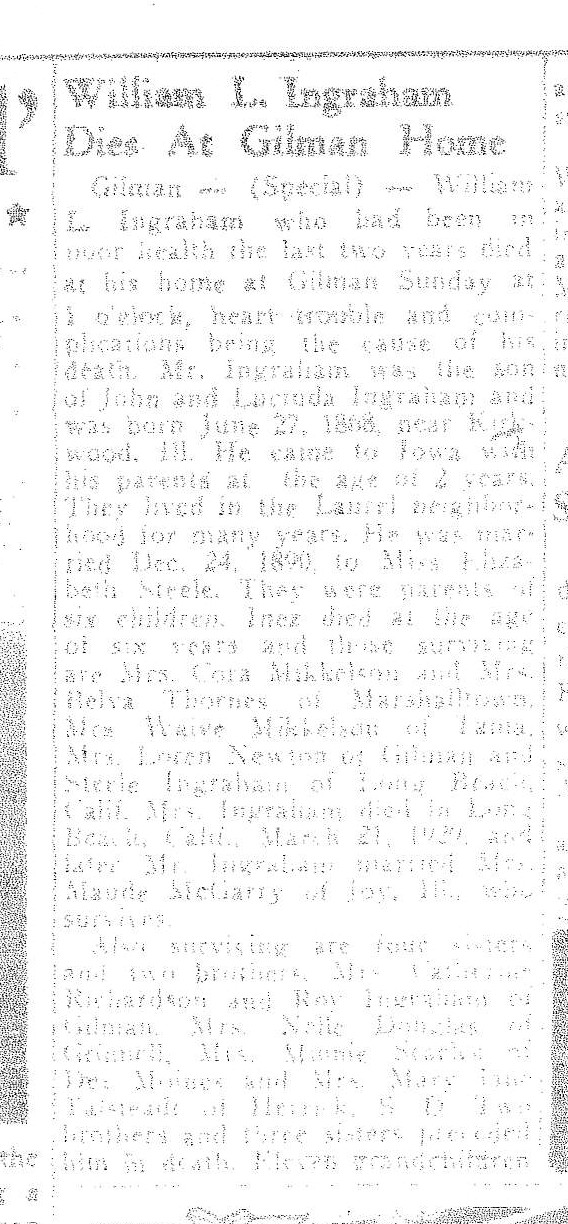 William L. Ingraham
Dies At Gilman Home
Gilman — (Special) — William
L. Ingraham who had been in
poor health the last two years died
at his home at Gilman Sunday at
1 o'clock, heart trouble and com-
plications being the cause of his
death. Mr. Ingraham was the son
of John and Lucinda Ingraham and
was born June 27, 1868, near Kirk-
wood, Ill. He came to Iowa with
his parents at the age of 2 years.
They lived in the Laurel neighbor-
hood for many years. He was mar-
ried Dec. 24, 1890, to Miss Eliza-
beth Steele. They were parents of
six children. Inez died at the age
of six years and those surviving
are Mrs. Cora Mikkelson and Mrs.
Belva Thornes of Marshalltown,
Mrs Waive Mikkelson of Tama,
Mrs. Loren Newton of Gilman and
Steele Ingraham of Long Beach,
Calif. Mrs. Ingraham died in Long
Beach, Calif., March 21, 1929, and
later Mr. Ingraham married Mrs.
Maude McGarry of Joy, Ill., who
survives.
Also surviving are four sisters
and two brothers, Mrs. Catherine
Richardson and Roy Ingraham of
Gilman, Mrs. Nelle Douglas of
Grinnell, Mrs. Minnie of
Des Moines and Mrs. Mary Jane
of Herrick, S. D. Two
brothers and three sisters preceded
him in death. Eleven grandchildren